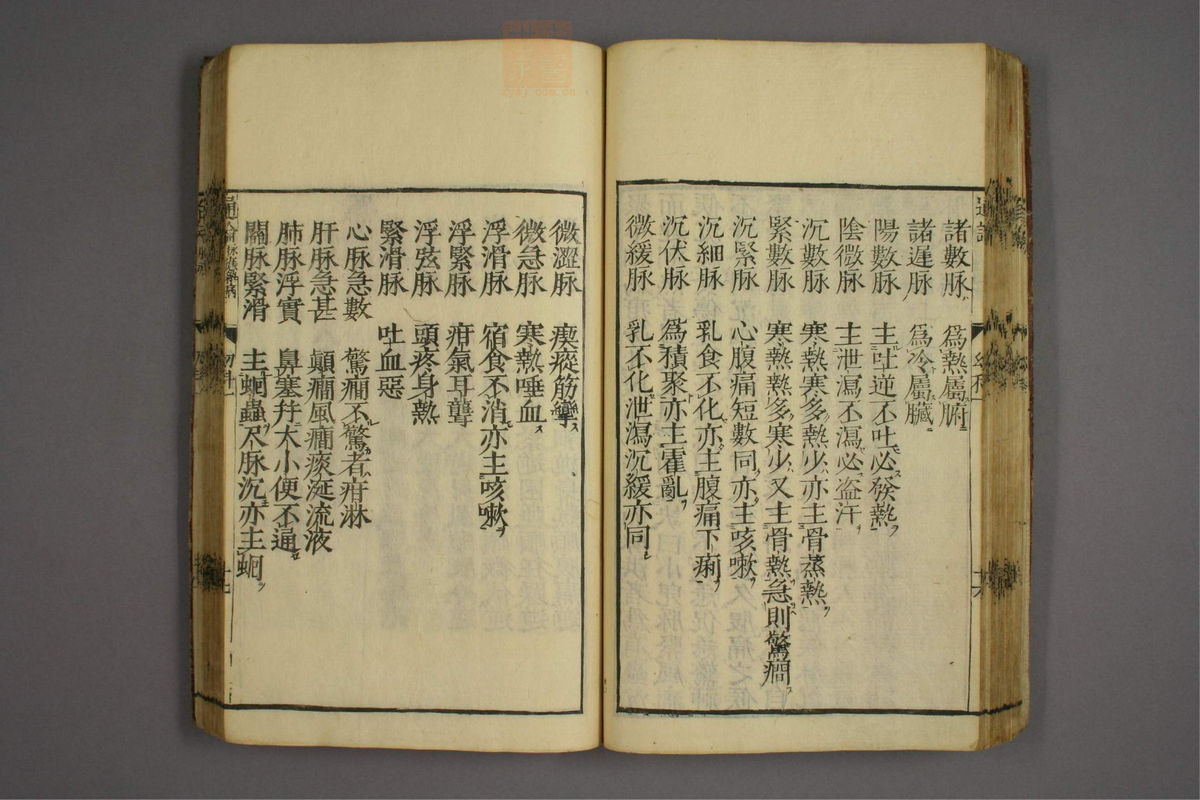 諸數脉 為熱屬腑
諸遲脉 為冷屬臟
陽數脉 主吐逆不吐必發熱
陰微脉 主泄瀉不瀉必盗汗
沉數脉 寒熱寒多熱少亦主骨蒸熱
緊數脉 寒熱熱多寒少又主骨熱急則驚癇
沉緊脉 心腹痛短數同亦主咳嗽
沉細脉 乳食不化亦主腹痛下痢
沉伏脉 為積聚亦主霍亂
微緩脉 乳不化泄瀉沉緩亦同
十六
微澀脉 瘈瘲筋攣
微急脉 寒熱唾血
浮滑脉 宿食不消亦主咳嗽
浮緊脉 疳氣耳聾
浮弦脉 頭疼身熱
緊滑脉 吐血惡
心脉急數 驚癇不驚者疳淋
肝脉急甚 癲癇風癇痰涎流液
肺脉浮實 鼻塞并大小便不通
關脉緊滑 主蛔蟲尺脉沉亦主蛔
十七